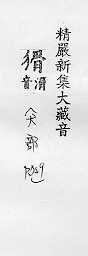 精嚴新集大藏音
猾
滑音
犬部